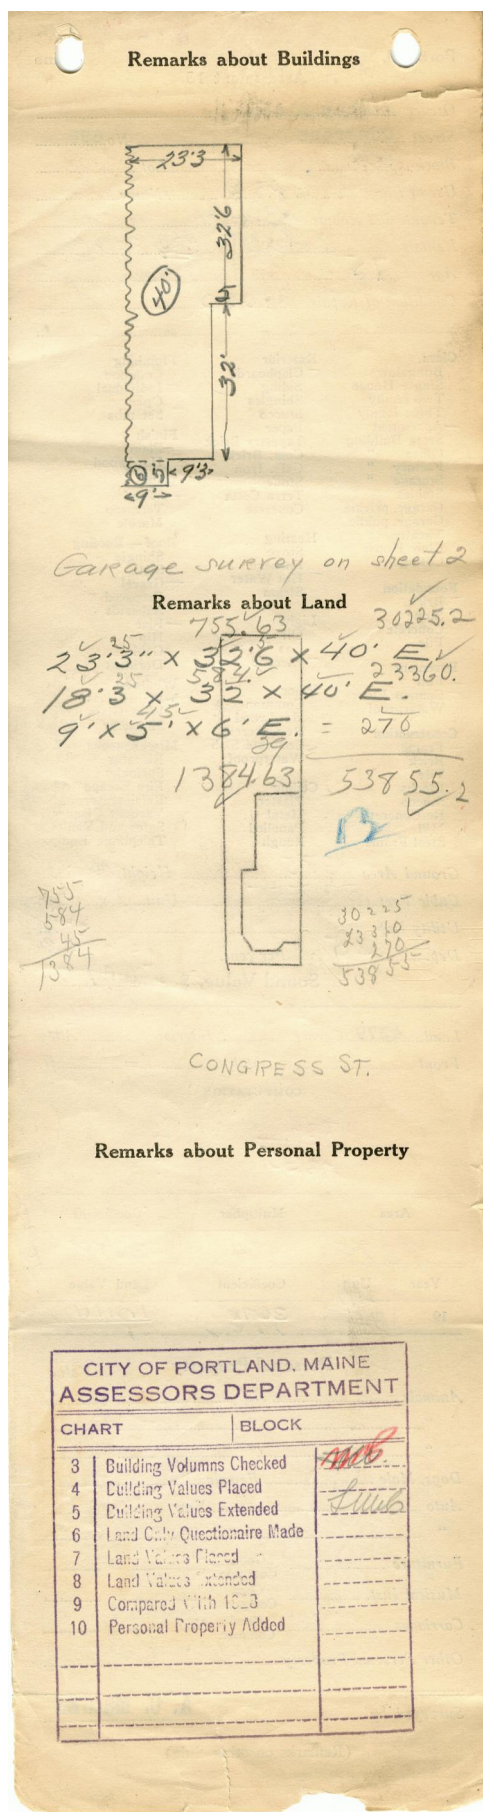 Remarks about Buildings
23'3
32'6
5'
40'
32'
6 5'
9'3
9'
Garage survey on sheet 2
Remarks about Land
755.63 30225.2
23'3" x 32'6 x 40' E.
25 5
584. 23360.
18'3 x 32 x 40' E.
25
45
9' x 5' x 6' E. = 270
39
1384.63 53855.2
B
755
584
45
1384
30225
23310
270
53855
CONGRESS ST.
Remarks about Personal Property
CITY OF PORTLAND, MAINE
ASSESSORS DEPARTMENT
CHART BLOCK
3 Building Volumns Checked
4 Building Values Placed
5 Building Values Extended
6 Land Only Questionaire Made
7 Land Values Placed
8 Land Values Extended
9 Compared With 1923
10 Personal Property Added